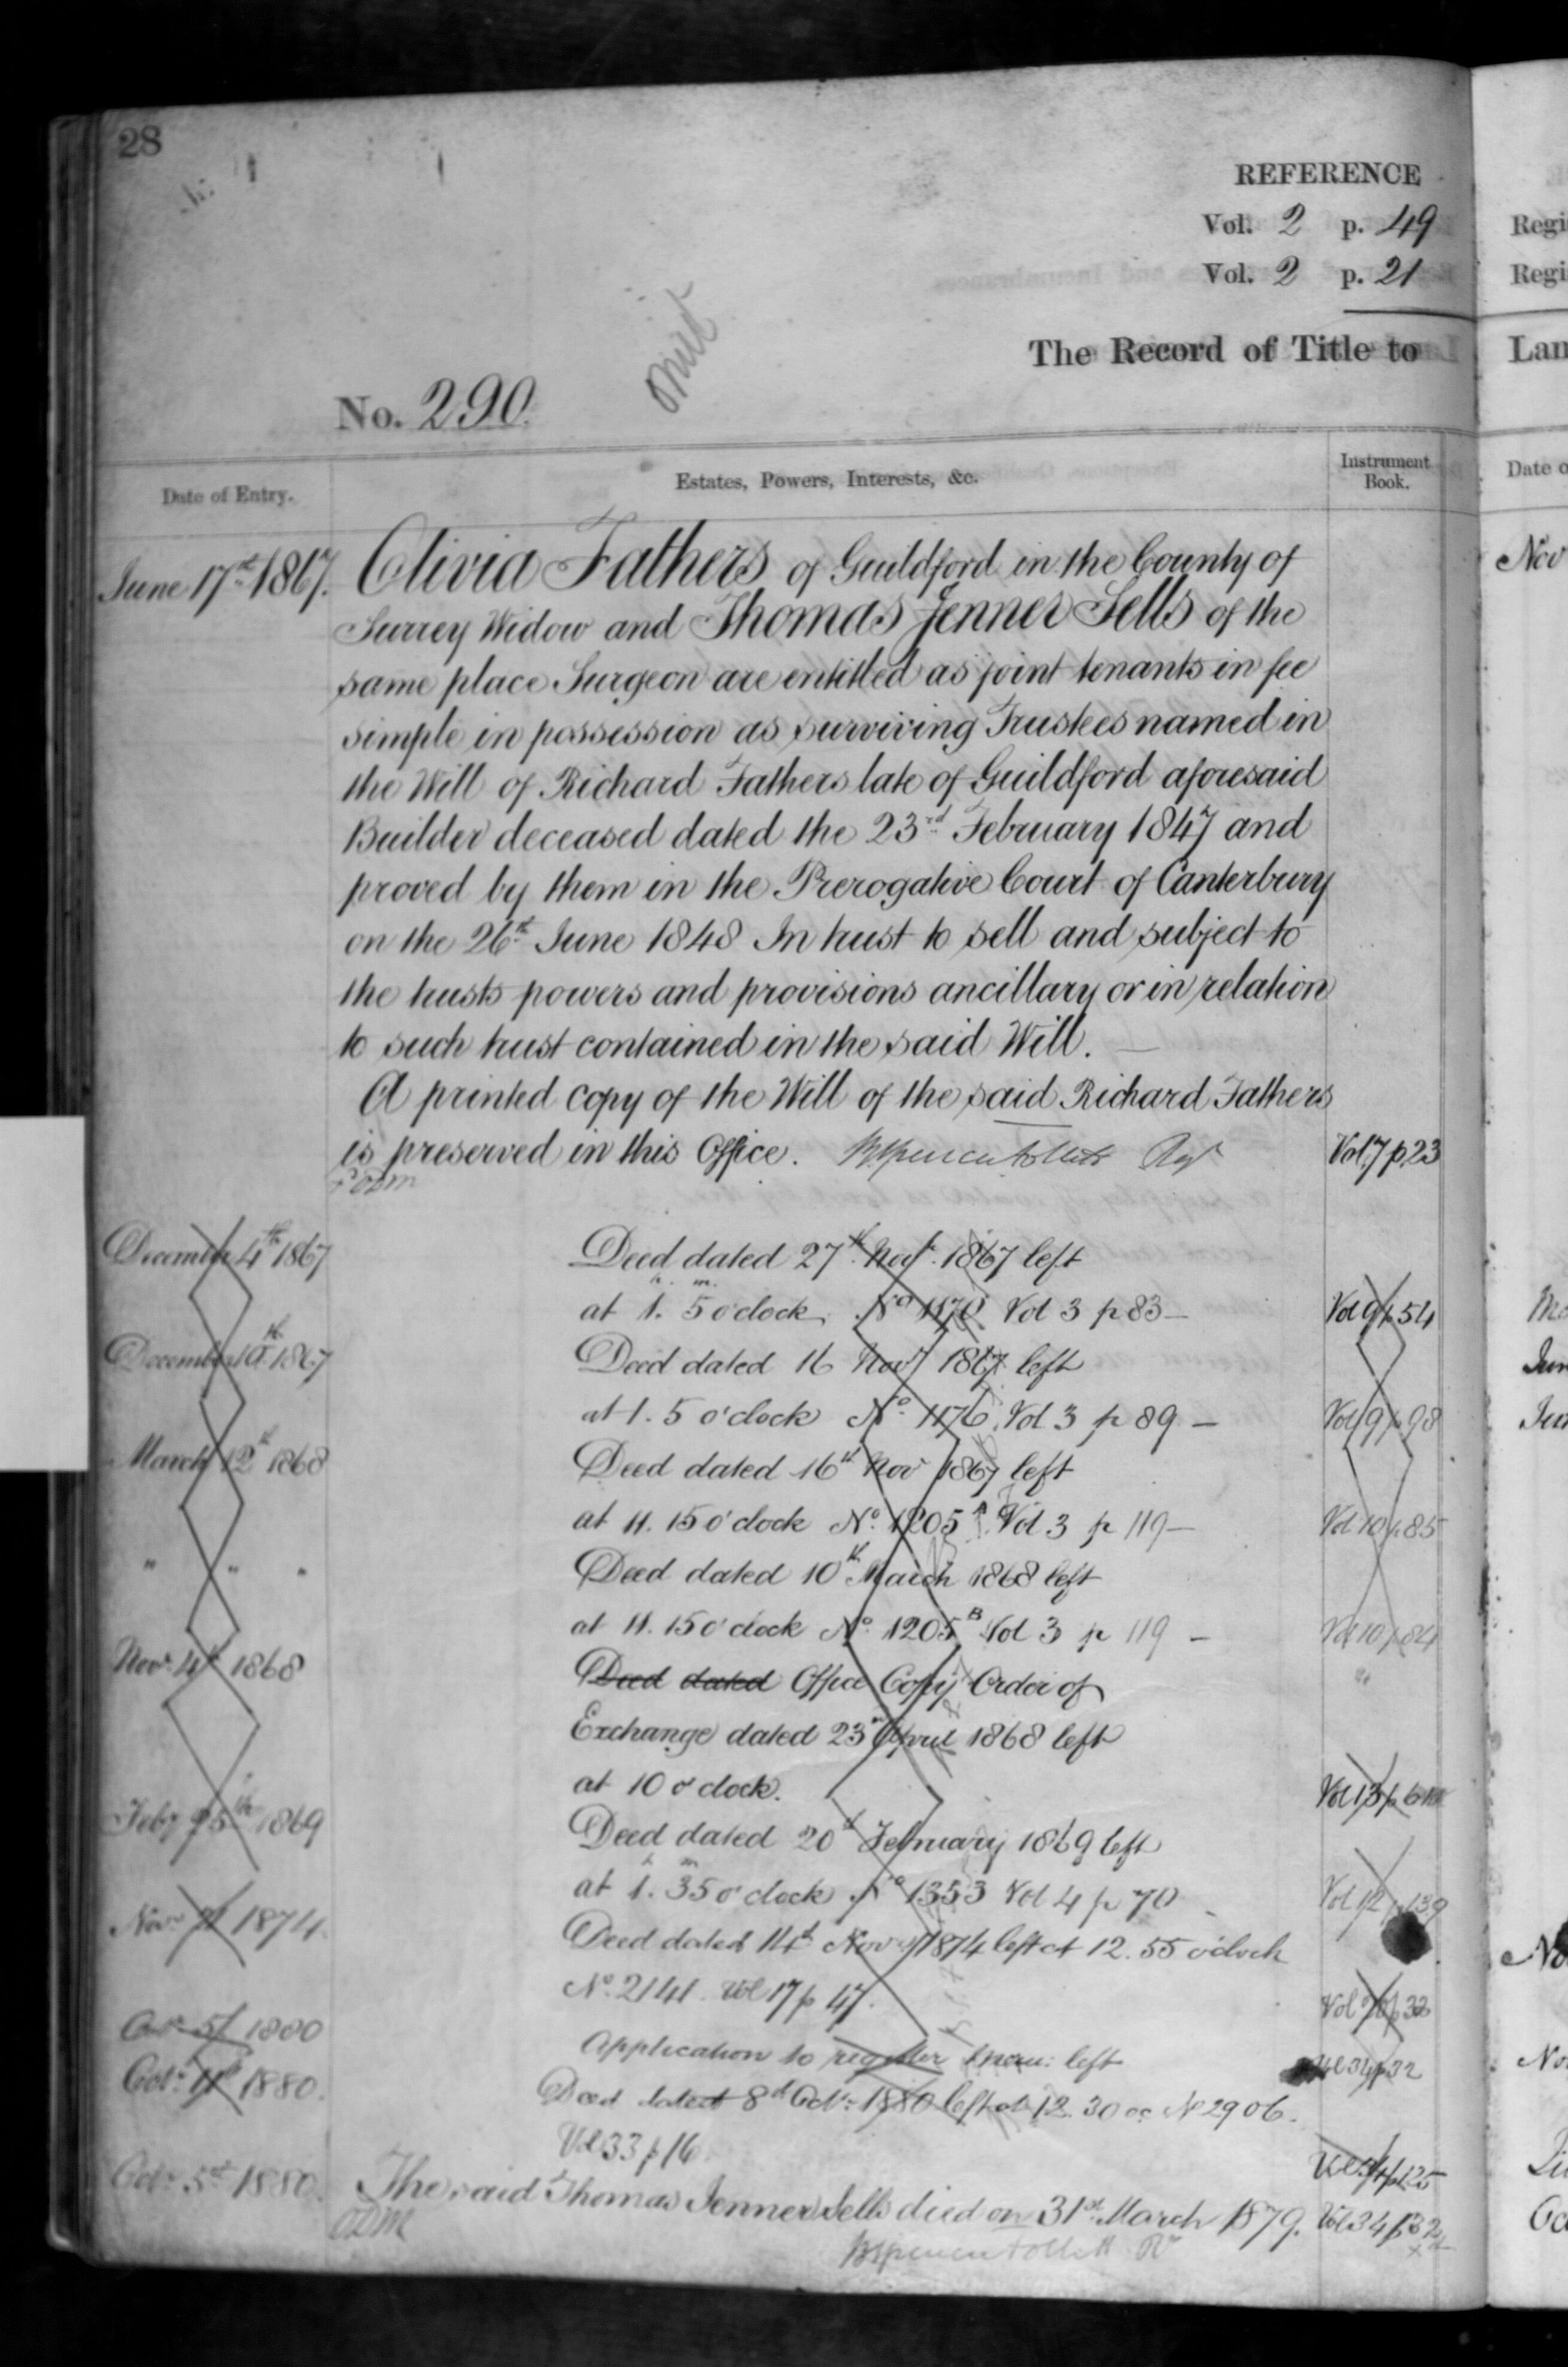 28
REFERENCE
Vol. 2 p. 49
Vol. 2 p. 21
The Record of Title to
No. 290.
omit
Date of Entry.
Estates, Powers, Interests, &c.
Instrument Book.
June 17th 1867. Olivia Fathers of Guildford in the County of
Surrey Widow and Thomas Jenner Sells of the
same place Surgeon are entitled as joint tenants in fee
simple in possession as surviving Trustees named in
the Will of Richard Fathers late of Guildford aforesaid
Builder deceased dated the 23rd February 1847 and
proved by them in the Prerogative Court of Canterbury
on the 26th June 1848 In trust to sell and subject to
the trusts powers and provisions ancillary or in relation
to such trust contained in the said Will.
A printed copy of the Will of the said Richard Fathers
is preserved in this Office. Vol 7 p 23
December 4th 1867 Deed dated 27th Novr. 1867 left
at 1. 5 o'clock No 1170 Vol 3 p 83 — Vol 9 p 54
December 1867 Deed dated 16 Novr 1867 left
at 1. 5 o'clock No. 1176 Vol 3 p 89 — Vol 9 p 98
March 12th 1868 Deed dated 16th Nov 1867 left
at 11. 15 o'clock No. 1205 A Vol 3 p 119 — Vol 10 p 85
" " " Deed dated 10th March 1868 left
at 11. 15 o'clock No. 1205 B Vol 3 p 119 — Vol 10 p 84
Novr. 4th 1868 Deed dated Office Copy Order of "
Exchange dated 23rd April 1868 left
at 10 o'clock. Vol 13 p
Feby 25th 1869 Deed dated 20th February 1869 left
at 1. 35 o'clock No 1353 Vol 4 p 70 Vol 12 p 139
Novr 21 1874. Deed dated 14th Novr 1874 left at 12. 55 o'clock
No. 2141. Vol 17 p 47. Vol p 32
Octr 5th 1880 Application to register left Vol 34 p 32
Octr. 11th 1880. Deed dated 8th Octr. 1880 left at 12. 30 oc No 2906.
Vol 33 p 16 Vol 34 p 125
Octr. 5th 1880. The said Thomas Jenner Sells died on 31st March 1879. Vol 34 p 32